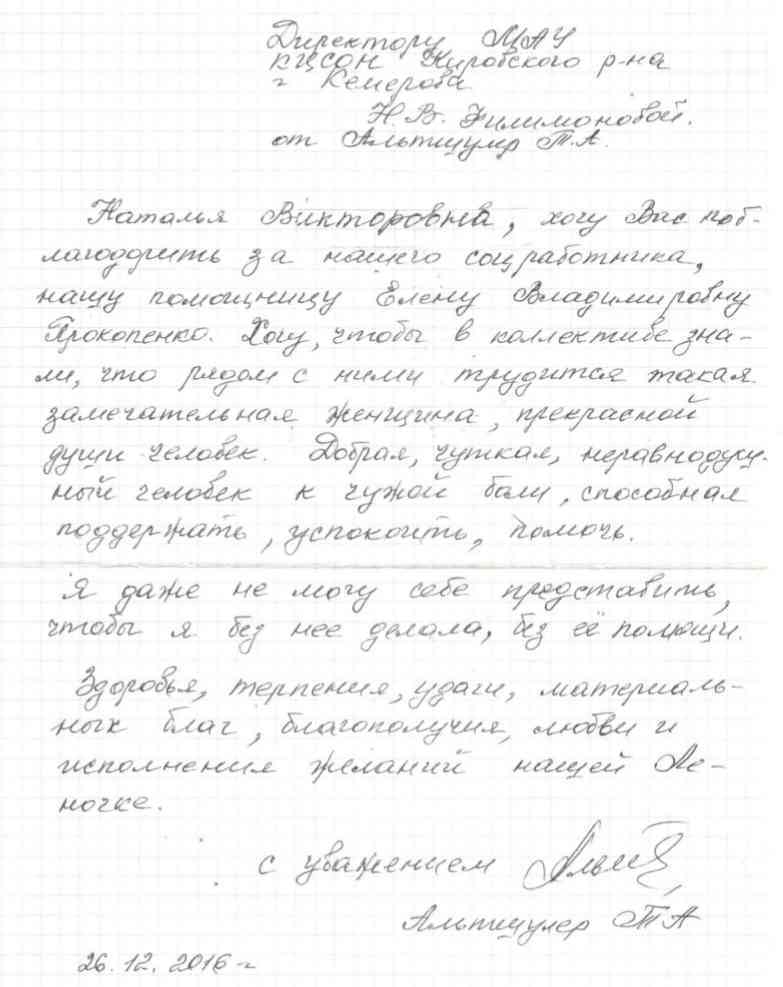 Директору МАУ
КЦСОН Кировского р-на
г Кемерова
Н.В. Филимоновой.
от Альтшулер Т.А.
Наталья Викторовна, хочу Вас поб-
лагодорить за нашего соцработника,
нашу помощницу Елену Владимировну
Прокопенко. Хочу, чтобы в коллективе зна-
ли, что рядом с ними трудится такая
замечательная женщина, прекрасной
души человек. Добрая, чуткая, неравнодуш-
ный человек к чужой боли, способная
поддержать, успокоить, помочь.
Я даже не могу себе представить,
чтобы я без нее делала, без её помощи.
Здоровья, терпения, удачи, материаль-
ных благ, благополучия, любви и
исполнения желаний нашей Ле-
ночке.
с уважением
Альтшулер Т А
26.12.2016 г